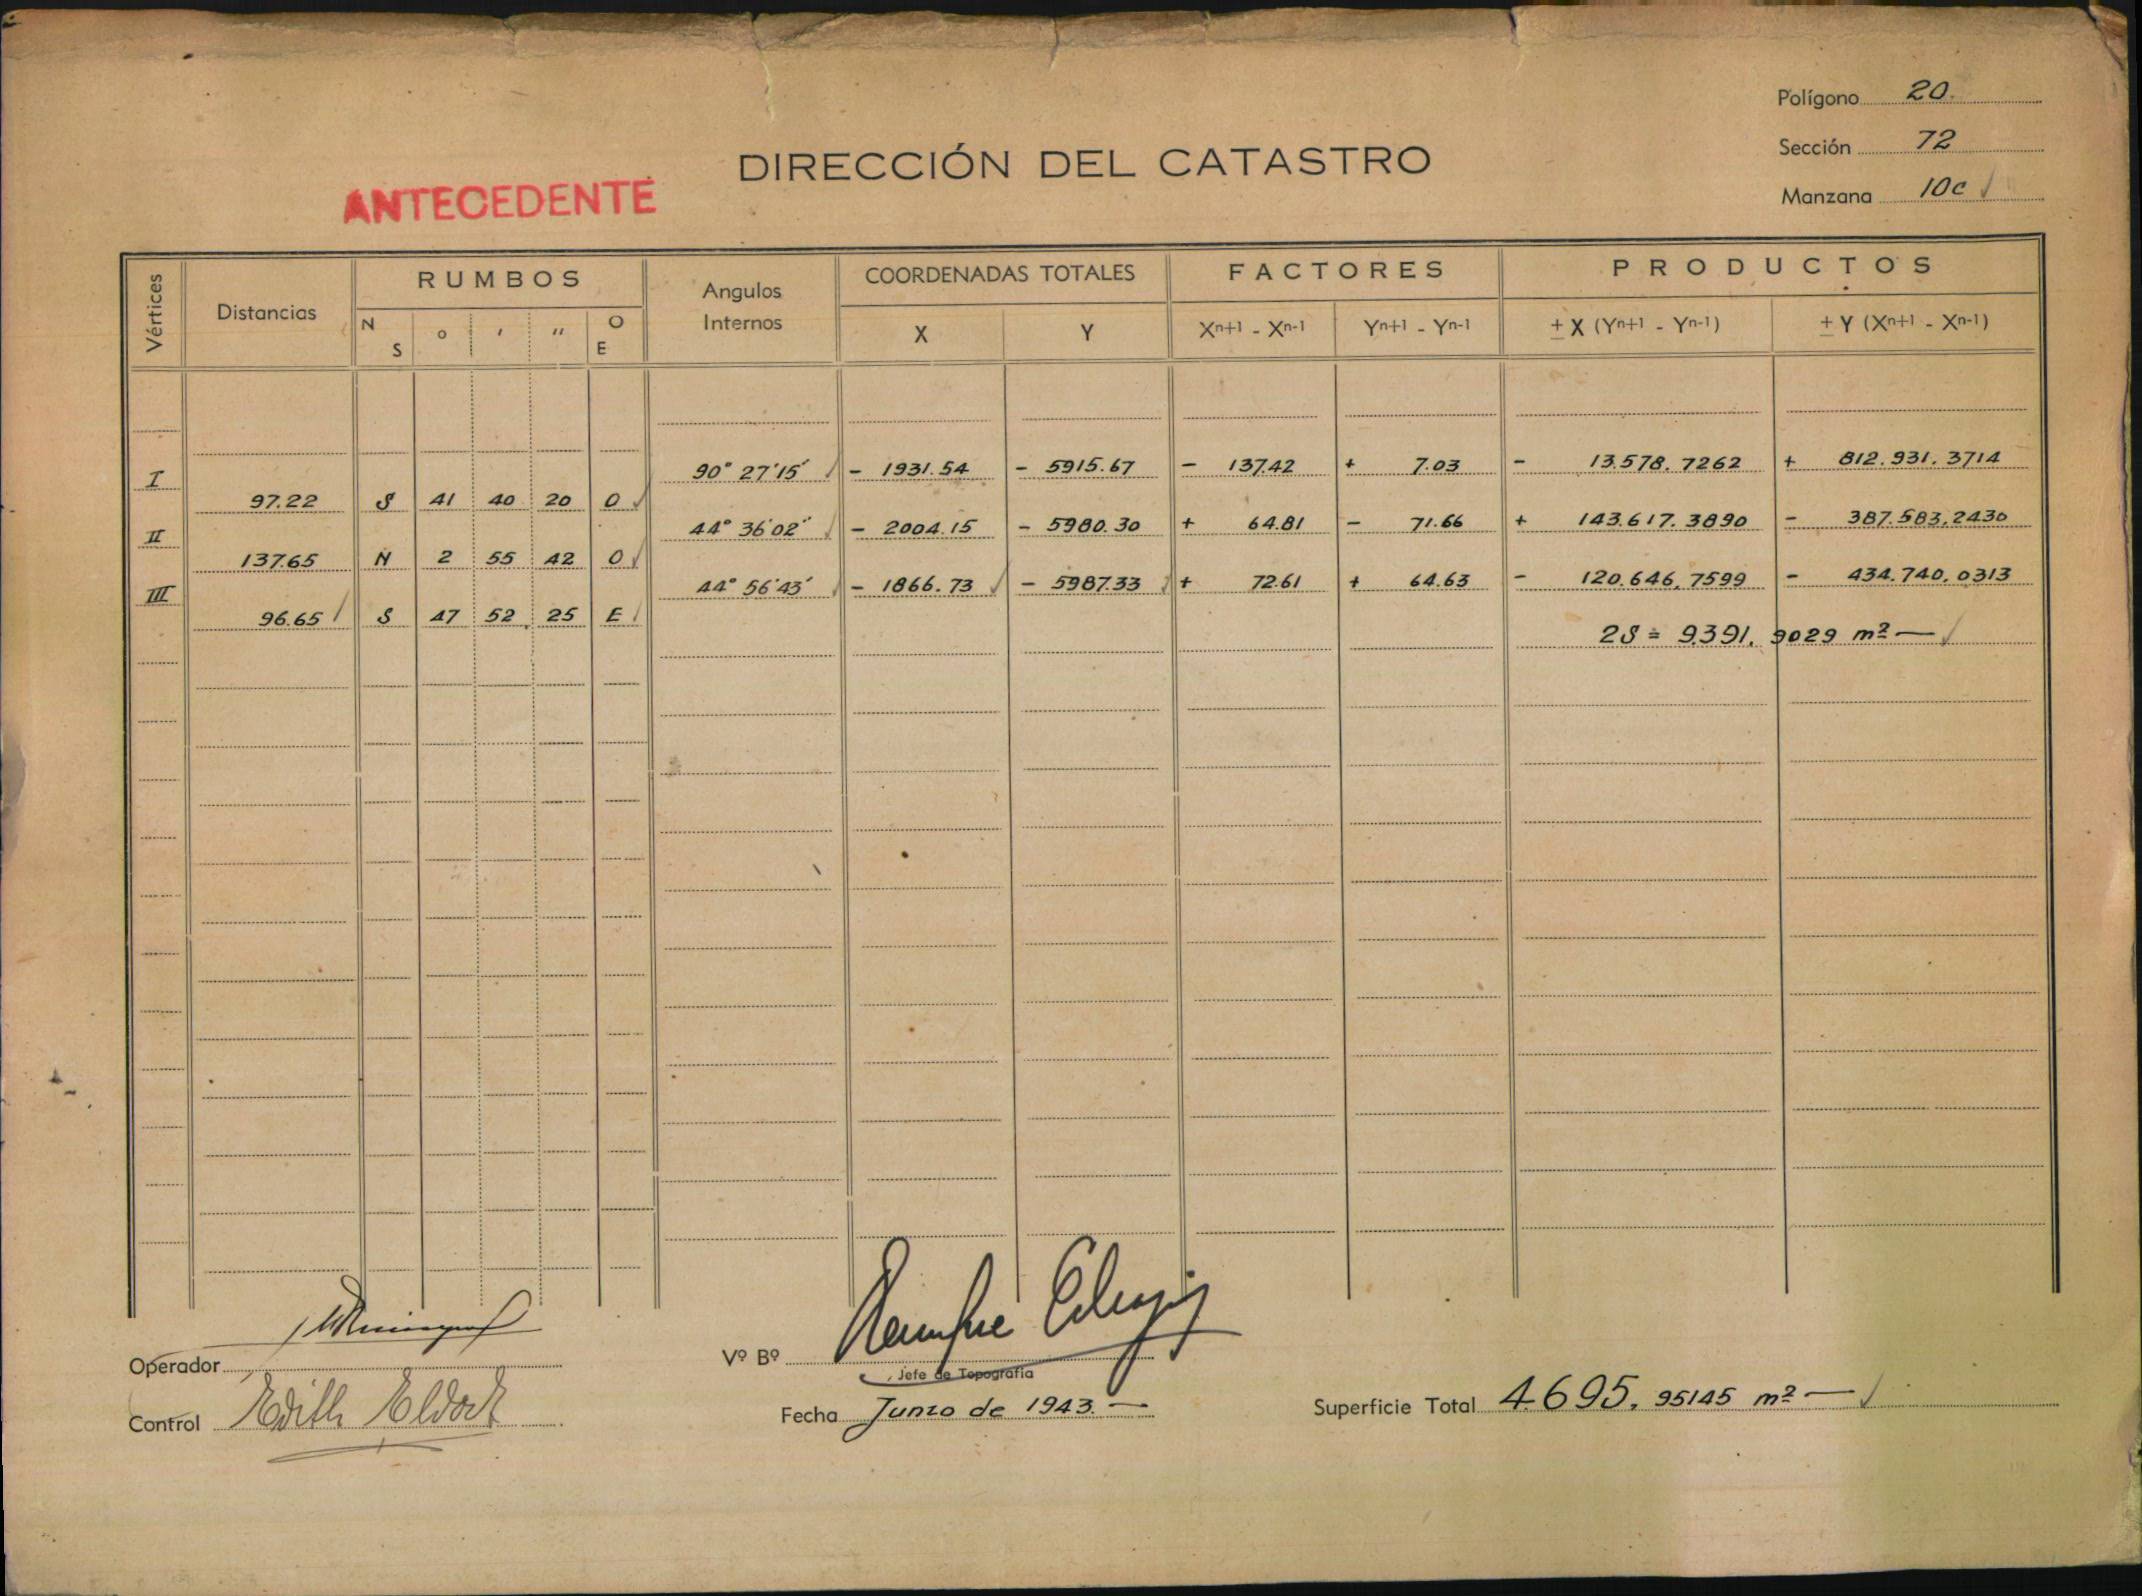 Polígono 20.
Sección 72
Manzana 10c ✓
DIRECCIÓN DEL CATASTRO
ANTECEDENTE
Vértices Distancias RUMBOS Angulos Internos COORDENADAS TOTALES FACTORES PRODUCTOS
N S ° ' " O E X Y Xn+1 - Xn-1 Yn+1 - Yn-1 ± X (Yn+1 - Yn-1) ± Y (Xn+1 - Xn-1)
I 90° 27'15" ✓ - 1931.54 - 5915.67 - 137.42 + 7.03 - 13.578.7262 + 812.931.3714
97.22 S 41 40 20 O ✓
II 44° 36'02" - 2004.15 - 5980.30 + 64.81 - 71.66 + 143.617.3890 - 387.583,2430
137.65 N 2 55 42 O ✓
III 44° 56'43" ✓ - 1866.73 ✓ - 5987.33 ✓ + 72.61 + 64.63 - 120.646,7599 - 434.740,0313
96.65 ✓ S 47 52 25 E ✓
2S = 9.391.9029 m² — ✓
Operador
Vº Bº
Jefe de Topografía
Control Edith
Fecha Junio de 1943. —
Superficie Total 4.695.95145 m² — ✓